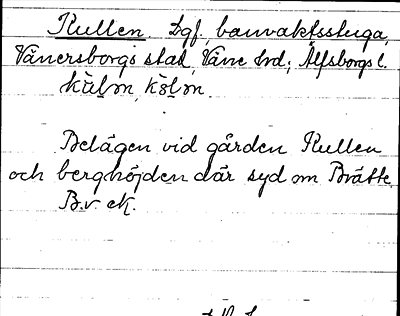 Kullen. Lgf. banvaktsstuga,
Vänersborgs stad, Väne hrd; Älfsborgs l.
Belägen vid gården Kullen
och berghöjden där syd om Brätte.
B.v ek.